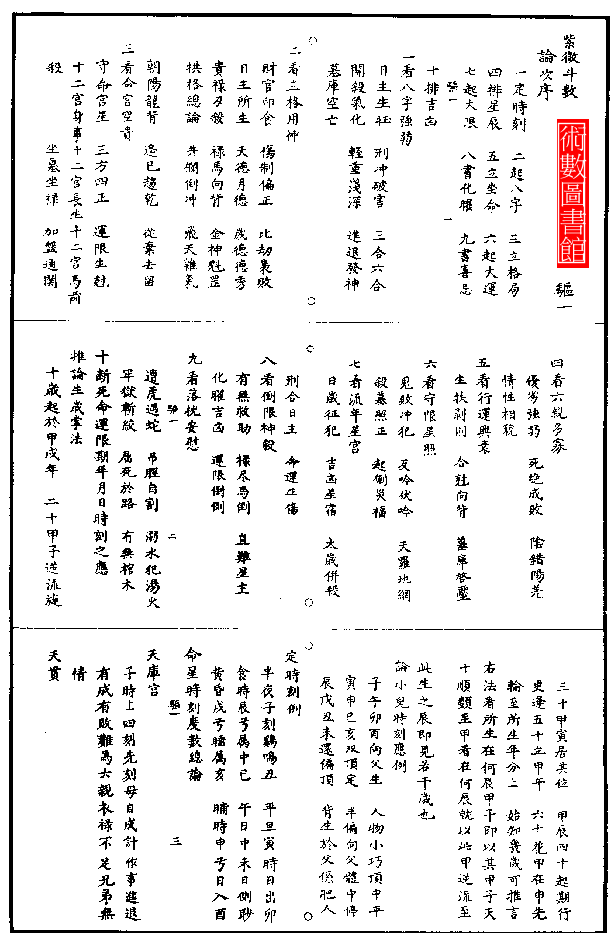 紫微斗數
術數圖書館
驅一
論次序
一定時刻 二起八字 三立格局
四排星辰 五立坐命 六起大運
七起大限 八書化曜 九書喜忌
十排吉凶
一看八字強弱
日主生旺 刑冲破害 三合六合
開殺氣化 輕重淺深 進退發神
墓庫空亡
二看立格用神
財官印食 傷制偏正 比劫梟敗
日主所生 天德月德 歲德德秀
貴祿刃殺 祿馬向背 金神魁罡
拱格總論 井欄倒冲 飛天雜氣
朝陽龍背 從棄去留
三看命宮空貴
守命宮星 三方四正 運限生尅
十二宮身事十二宮長生十二宮馬前
殺 坐墓坐祿 加盤通關
四看六親多寡
優劣強弱 死絕成敗 陰錯陽差
情性相貌
五看行運興衰
生扶剥削 合社向背
六看守限星照
見敗冲犯 反吟伏吟 天羅地網
殺暮照正 起倒災福
七看流年星宮
日歲征犯 吉凶星宿 太歲併殺
刑合日主 命運正傷
八看倒限神殺
有無救助 祿尽馬倒 直難星主
化曜吉凶 運限倒倒
九看落枕安慰
遺虎遇蛇 吊脰自刎 溺水犯湯火
牢獄斬絞 屬死於路 有無棺木
十斷死命運限期年月日時刻之應
推論生成掌法
十歲起於甲戌年 二十甲子逆流旋
三十甲寅居其位 甲辰四十起期行
更逢五十立甲午 六十花甲在申先
輪至所生年分上 始知幾歲可推言
右法看所生在何辰甲干即以其甲子天
十順類至甲看在何辰就以此甲逆流至
此生之辰即見若干歲也
論小兒時刻應例
子午卯酉向父生 人物小巧頂中平
寅申巳亥双頂定 半偏向父體中停
辰戌丑未還偏頂 背生於父係肥人
定時刻例
半夜子刻鷄鳴丑 平旦寅時日出卯
食時辰兮属中巳 午日中未日側眇
黄昏戌兮睹属亥 晡時申兮日入酉
命星時刻度數總論
天庫宫
子時上四刻先刻母自成計作事進退
有成有敗難爲六親衣祿不足兄弟無
情
天貫
驅一 一
驅一 二
驅一 三